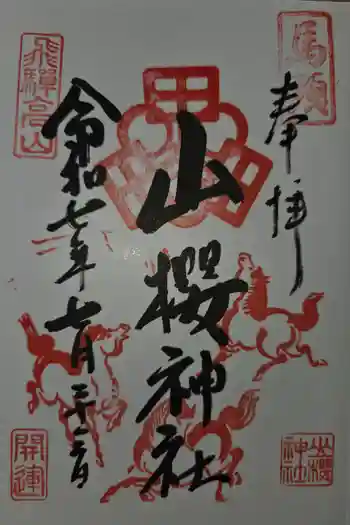 馬頭
奉拝
山櫻神社
飛驒高山
令和七年七月二十三日
開運
山櫻神社